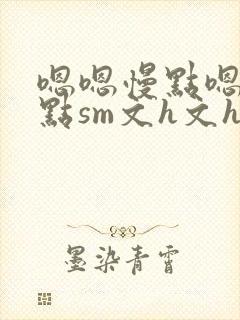 嗯嗯慢點嗯
點sm文h文h
墨染青霄